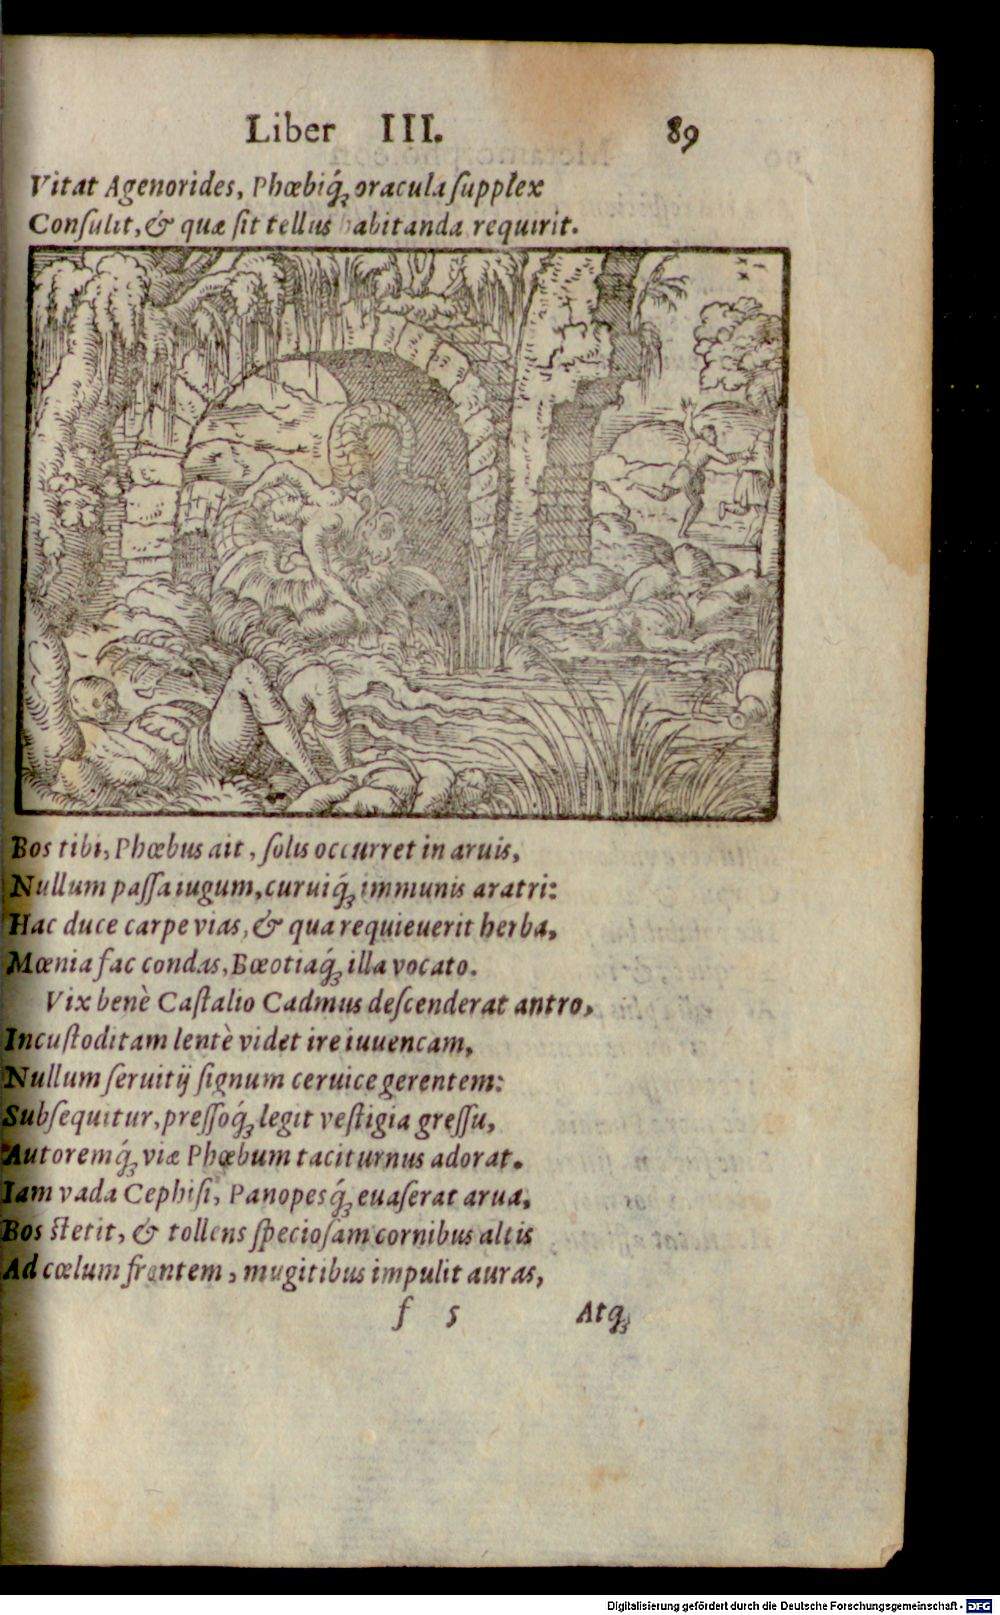 Liber III. 89
Vitat Agenorides, Phœbiq́ꝫ oracula ſupplex
Conſulit, & quæ ſit tellus habitanda requirit.
Bos tibi, Phœbus ait, ſolis occurret in aruis,
Nullum paſſa iugum, curuiq́ꝫ immunis aratri:
Hac duce carpe vias, & qua requieuerit herba,
Mœnia fac condas, Bœotiaq́ꝫ illa vocato.
Vix benè Caſtalio Cadmus deſcenderat antro,
Incuſtoditam lentè videt ire iuuencam,
Nullum ſeruitij ſignum ceruice gerentem:
Subſequitur, preſſoq́ꝫ legit veſtigia greſſu,
Autoremq́ꝫ viæ Phœbum taciturnus adorat.
Iam vada Cephiſi, Panopesq́ꝫ euaſerat arua,
Bos ſtetit, & tollens ſpecioſam cornibus altis
Ad cœlum frontem, mugitibus impulit auras,
f 5 Atqꝫ
Digitalisierung gefördert durch die Deutsche Forschungsgemeinschaft - DFG